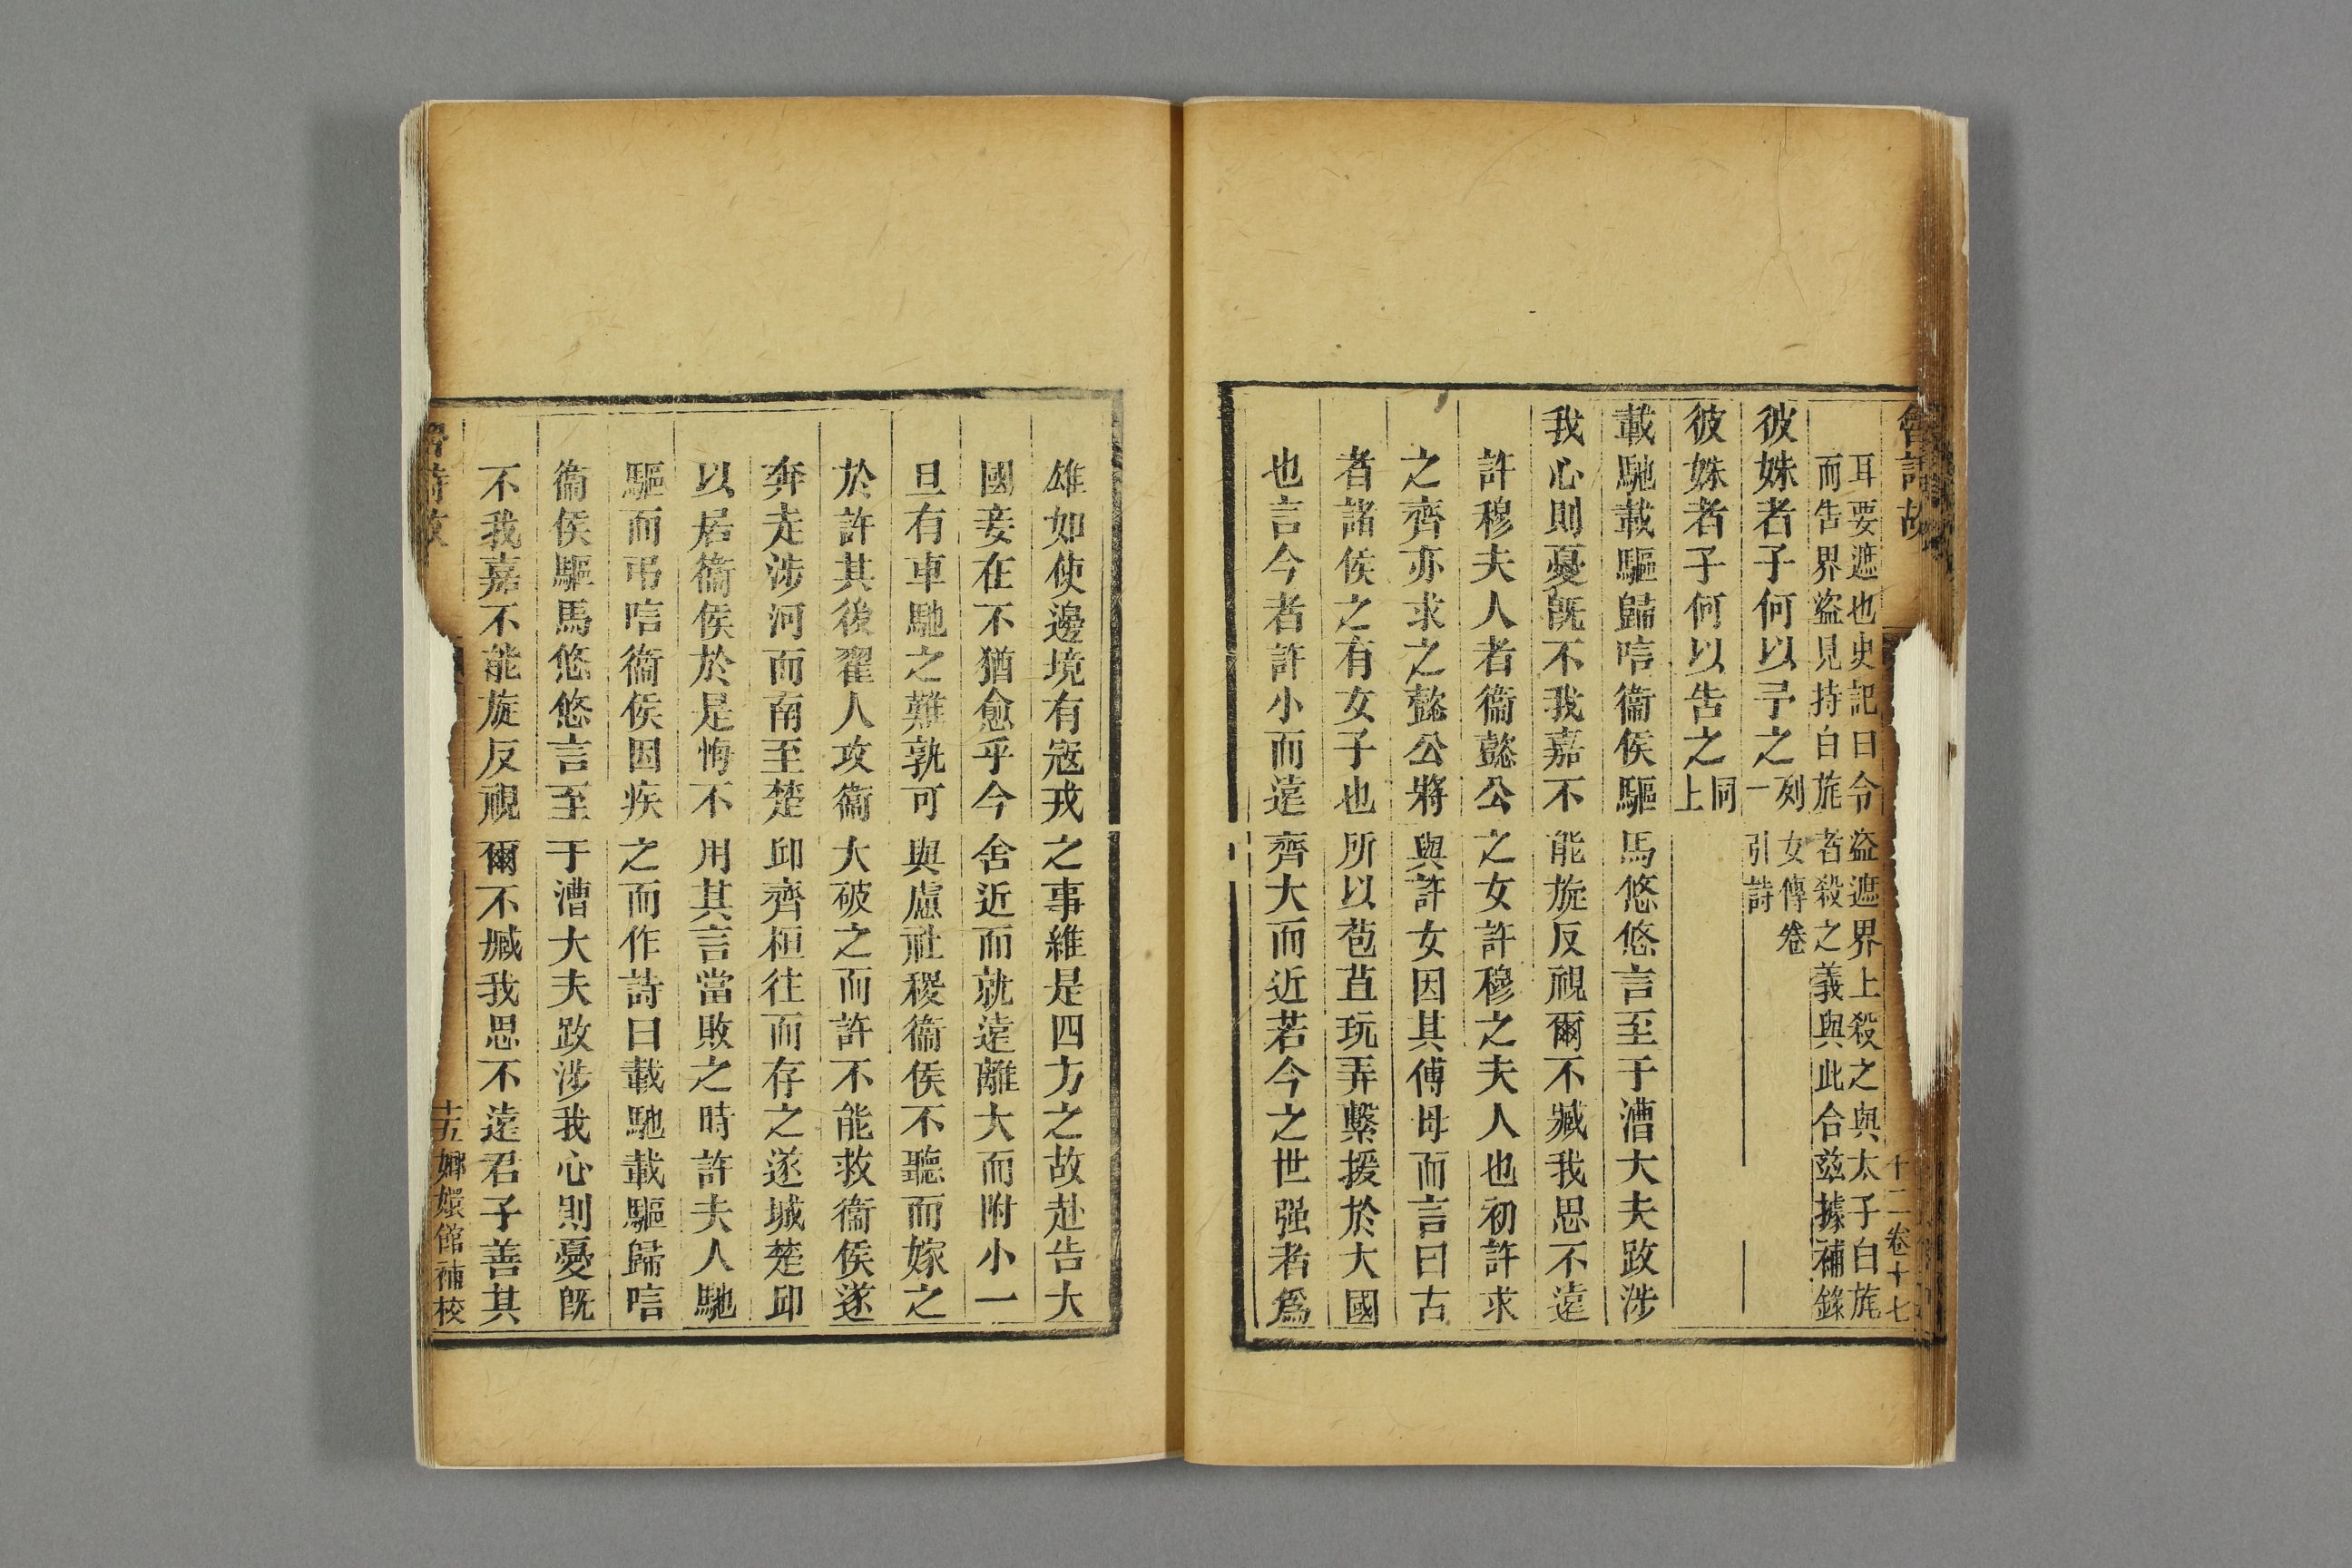 魯詩故
十二 卷十七
耳要遮也史記曰令盜遮界上殺之與太子白旄
而告界盜見持白旄者殺之義與此合茲據補錄
彼姝者子何以予之列女傳卷一引詩
彼姝者子何以告之同上
載馳載驅歸唁衞侯驅馬悠悠言至于漕大夫跋涉
我心則憂旣不我嘉不能旋反視爾不臧我思不遠
許穆夫人者衞懿公之女許穆之夫人也初許求
之齊亦求之懿公將與許女因其傅母而言曰古
者諸侯之有女子也所以苞苴玩弄繫援於大國
也言今者許小而遠齊大而近若今之世强者爲
雄如使邊境有寇戎之事維是四方之故赴告大
國妾在不猶愈乎今舍近而就遠離大而附小一
旦有車馳之難孰可與慮社稷衞侯不聽而嫁之
於許其後翟人攻衞大破之而許不能救衞侯遂
奔走涉河而南至楚邱齊桓往而存之遂城楚邱
以居衞侯於是悔不用其言當敗之時許夫人馳
驅而弔唁衞侯因疾之而作詩曰載馳載驅歸唁
衞侯驅馬悠悠言至于漕大夫跋涉我心則憂旣
不我嘉不能旋反視爾不臧我思不遠君子善其
魯詩故
十五 嫏嬛館補校